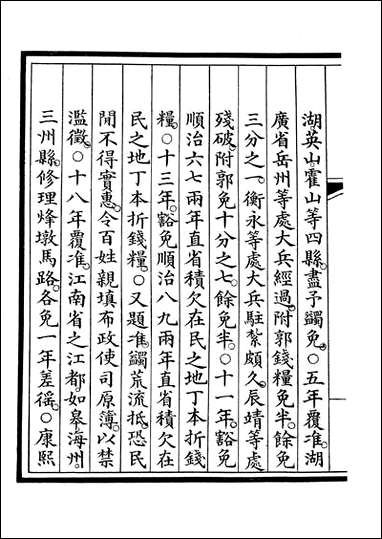 湖英山霍山等四縣。盡予蠲免。○五年覆准。湖
廣省岳州等處大兵經過。附郭錢糧免半。餘免
三分之一。衡永等處大兵駐紮頗久。辰靖等處
殘破。附郭免十分之七。餘免半。○十一年。豁免
順治六七兩年直省積欠在民之地丁本折錢
糧。○十三年。豁免順治八九兩年直省積欠在
民之地丁本折錢糧。○又題准。蠲荒流抵。恐民
閒不得實惠。令百姓親填布政使司原簿。以禁
濫徵。○十八年覆准。江南省之江都。如皋。海州。
三州縣。修理烽墩馬路。各免一年差徭。○康熙